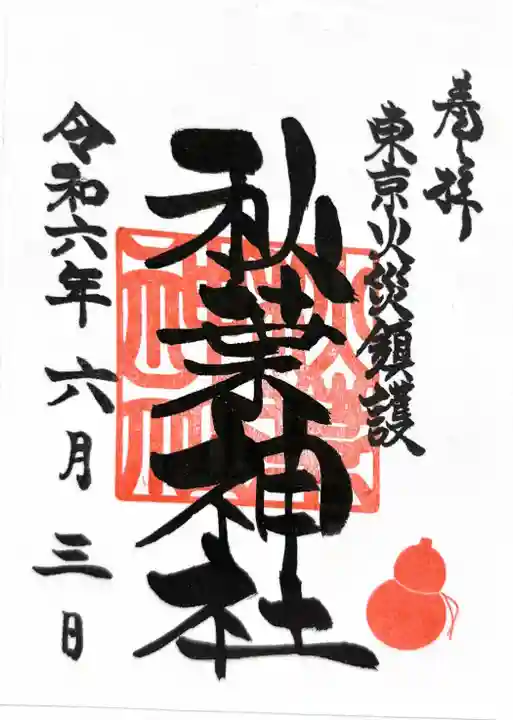 奉拝
東京火災鎮護
秋葉神社
令和六年 六月 三日